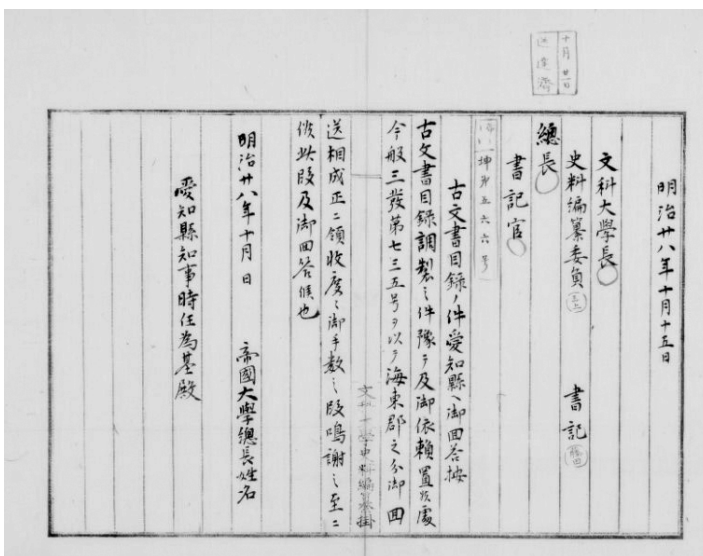 十月廿一日
送達済
明治廿八年十月十五日
文科大學長
史料編纂委員 三上
書記
總長
書記官
坤第五六六号
古文書目録ノ件愛知縣ヘ御回答按
古文書目録調製之件豫テ及御依頼置候處
今般三發第七三五号ヲ以テ海東郡之分御回
送相成正ニ領收度々御手数之段鳴謝之至ニ
候此段及御回答候也
明治廿八年十月 日
帝國大學總長姓名
愛知縣知事時任為基殿